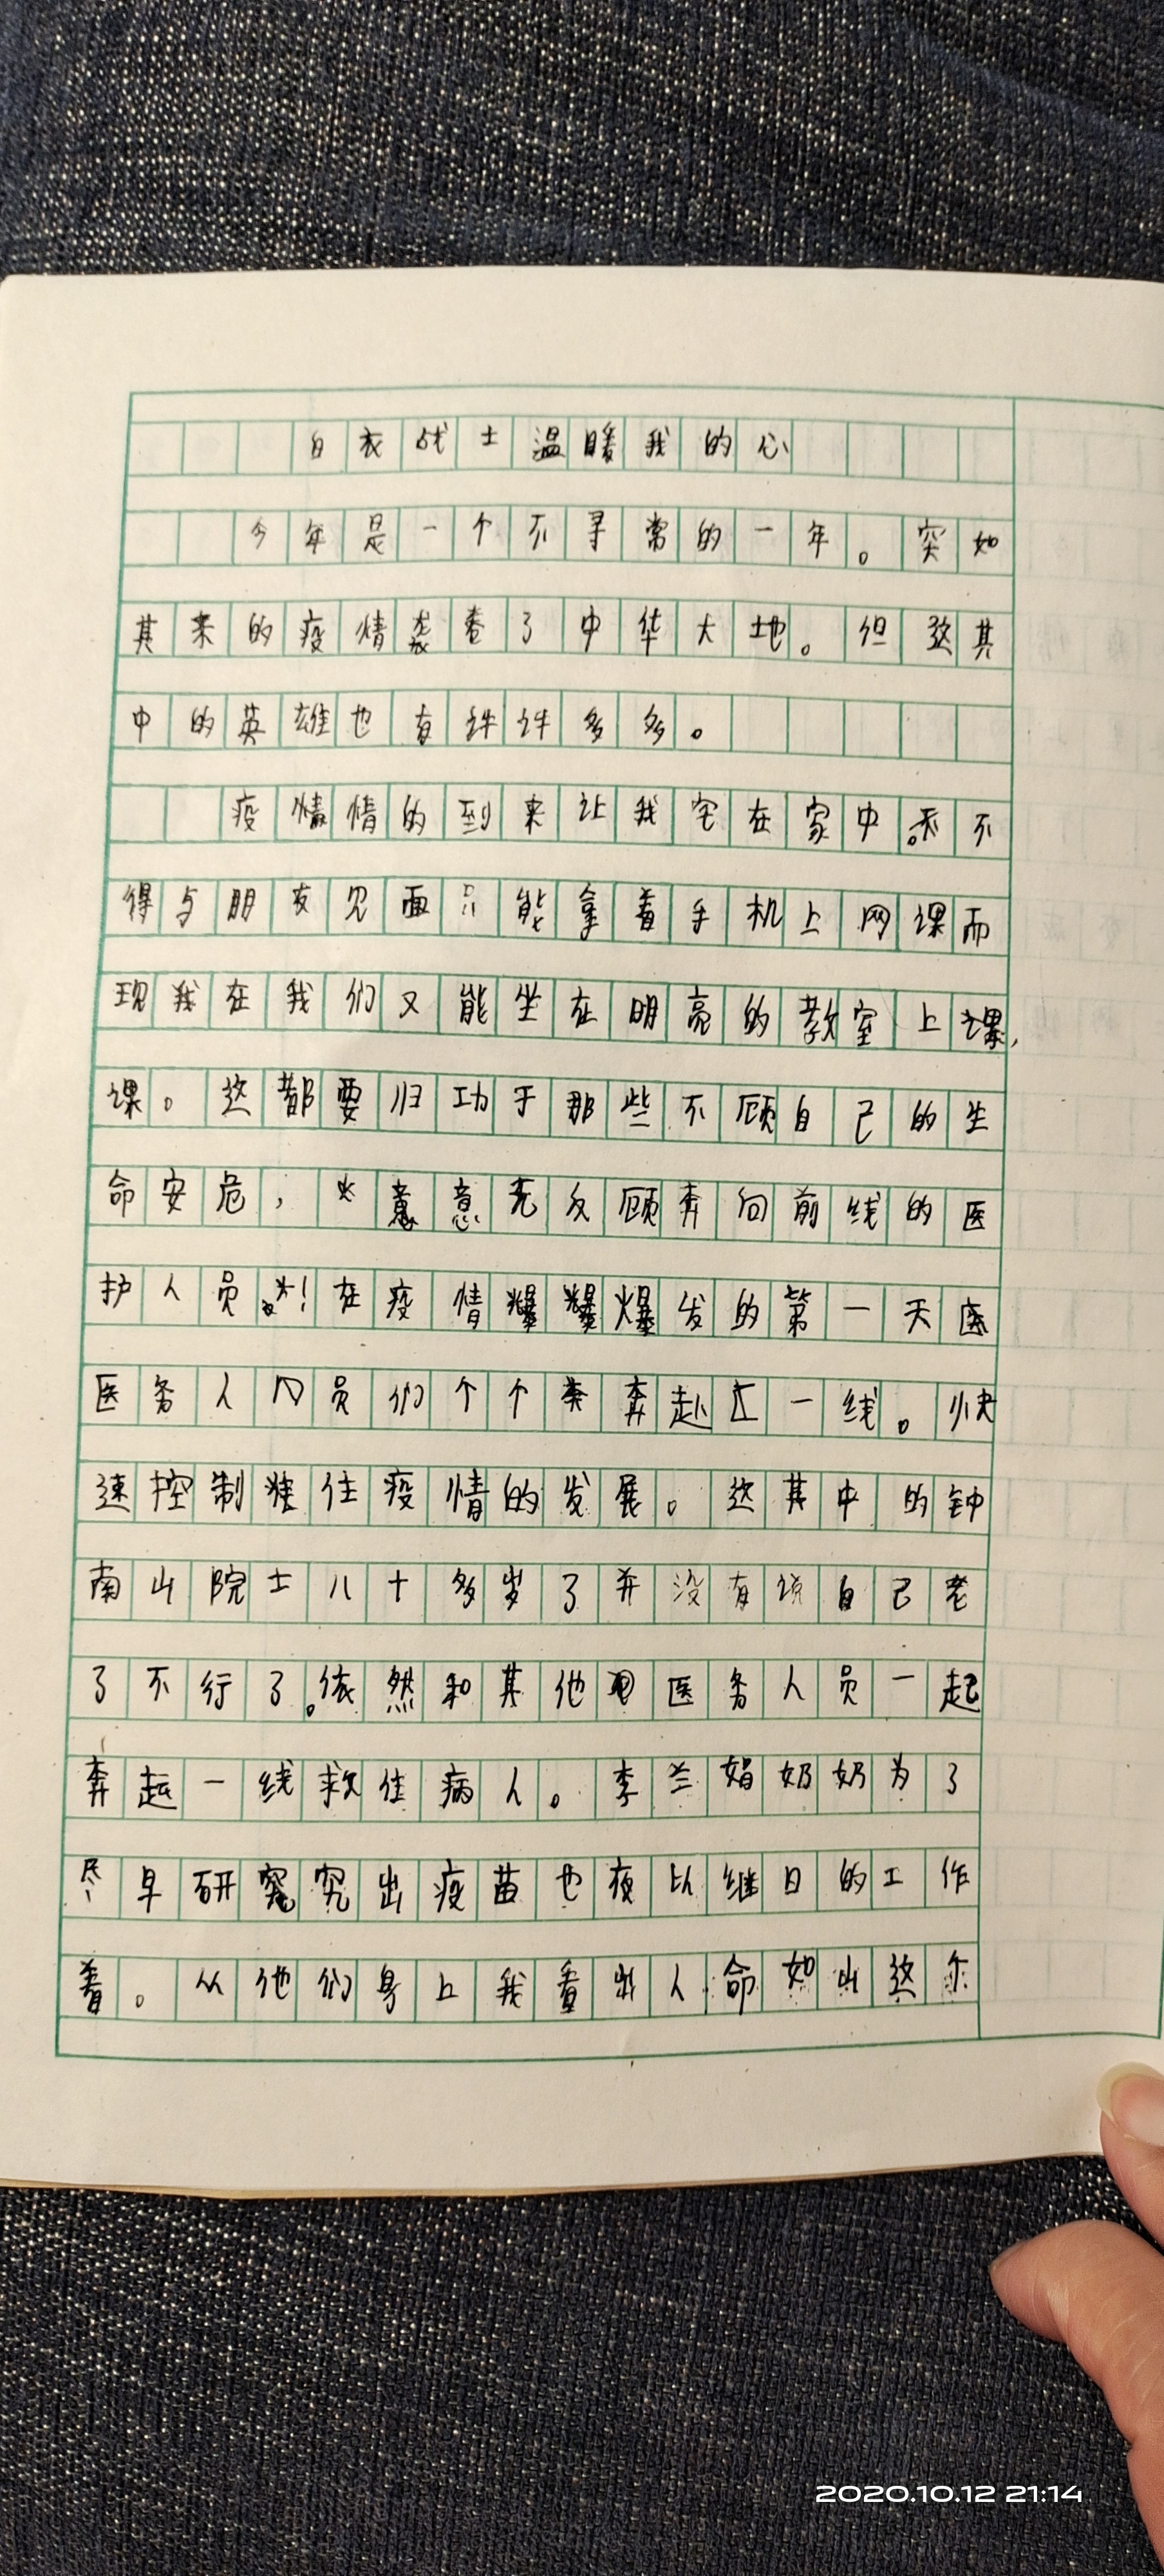 白衣战士温暖我的心
今年是一个不寻常的一年。突如
其来的疫情袭卷了中华大地。但这其
中的英雄也有许许多多。
疫情情的到来让我宅在家中。不
得与朋友见面只能拿着手机上网课而
现我在我们又能坐在明亮的教室上课,
课。这都要归功于那些不顾自己的生
命安危,意无反顾奔向前线的医
护人员!在疫情爆发的第一天医
医务人员们个个奔赴一线。快
速控制住疫情的发展。这其中的钟
南山院士八十多岁了并没有说自己老
了不行了。依然和其他医务人员一起
奔赴一线救住病人。李兰娟奶奶为了
尽早研究出疫苗也夜以继日的工作
着。从他们身上我看出人命如山这尔
2020.10.12 21:14